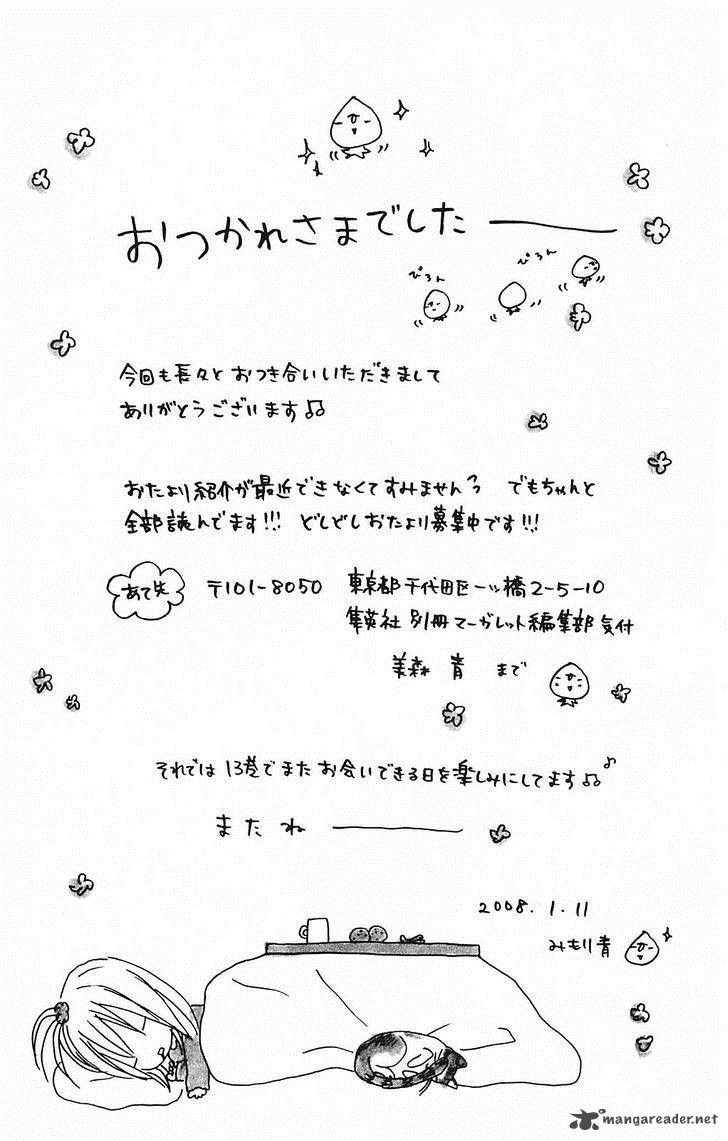 おつかれさまでした――
ぴろん
ぴろん
今回も長々とおつき合いいただきまして
ありがとうございます♫
おたより紹介が最近できなくてすみません でもちゃんと
全部読んでます!!! どしどしおたより募集中です!!!
あて先
〒101-8050 東京都千代田区一ッ橋2-5-10
集英社 別冊マーガレット編集部 気付
美森 青 まで
それでは 13巻でまた お会いできる日を楽しみにしてます♫♪
またね――
2008.1.11
みもり青
mangareader.net